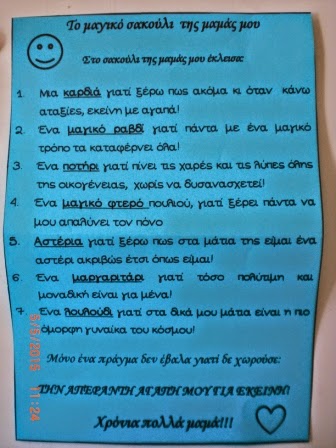 Το μαγικό σακούλι της μαμάς μου
Στο σακούλι της μαμάς μου έκλεισα:
1. Μια καρδιά γιατί ξέρω πως ακόμα κι όταν κάνω
αταξίες, εκείνη με αγαπά!
2. Ένα μαγικό ραβδί γιατί πάντα με ένα μαγικό
τρόπο τα καταφέρνει όλα!
3. Ένα ποτήρι γιατί πίνει τις χαρές και τις λύπες όλης
της οικογένειας, χωρίς να δυσανασχετεί!
4. Ένα μαγικό φτερό πουλιού, γιατί ξέρει πάντα να
μου απαλύνει τον πόνο
5. Αστέρια γιατί ξέρω πως στα μάτια της είμαι ένα
αστέρι ακριβώς έτσι όπως είμαι!
6. Ένα μαργαριτάρι γιατί τόσο πολύτιμη και
μοναδική είναι για μένα!
7. Ένα λουλούδι γιατί στα δικά μου μάτια είναι η πιο
όμορφη γυναίκα του κόσμου!
Μόνο ένα πράγμα δεν έβαλα γιατί δε χωρούσε:
ΤΗΝ ΑΠΕΡΑΝΤΗ ΑΓΑΠΗ ΜΟΥ ΓΙΑ ΕΚΕΙΝΗ!
Χρόνια πολλά μαμά!!!
11:24